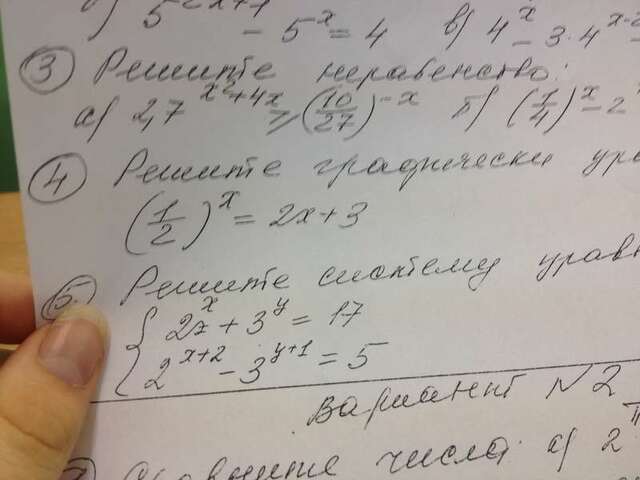 5^{2x+1} - 5^x = 4 в) 4^x - 3·4^{x-2}
③ Решите неравенство:
а) 2,7^{x²+4x} ≥ (10/27)^{-x} б) (1/4)^x - 2
④ Решите графически ура
(1/2)^x = 2x+3
⑤ Решите систему урав
{ 2^x + 3^y = 17
2^{x+2} - 3^{y+1} = 5
Вариант №2
числа: а) 2